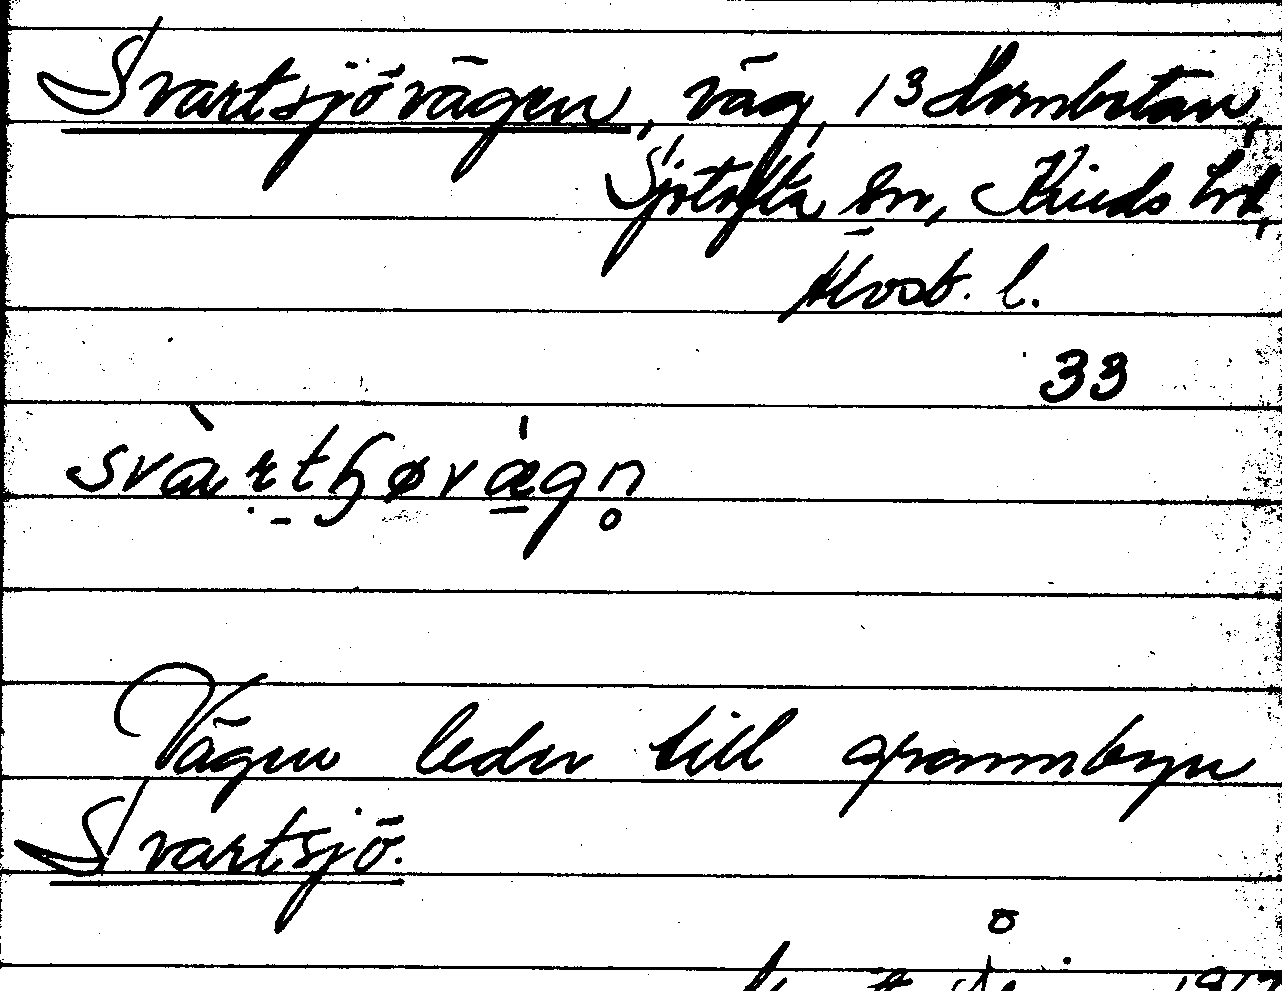 Svartsjövägen, väg, 13 Hornbetan,
Sjötofta sn, Kinds hd,
Älvsb. l.
33
svàrtꞕøvæ̀gn̥
Vägen leder till grannbyn
Svartsjö.